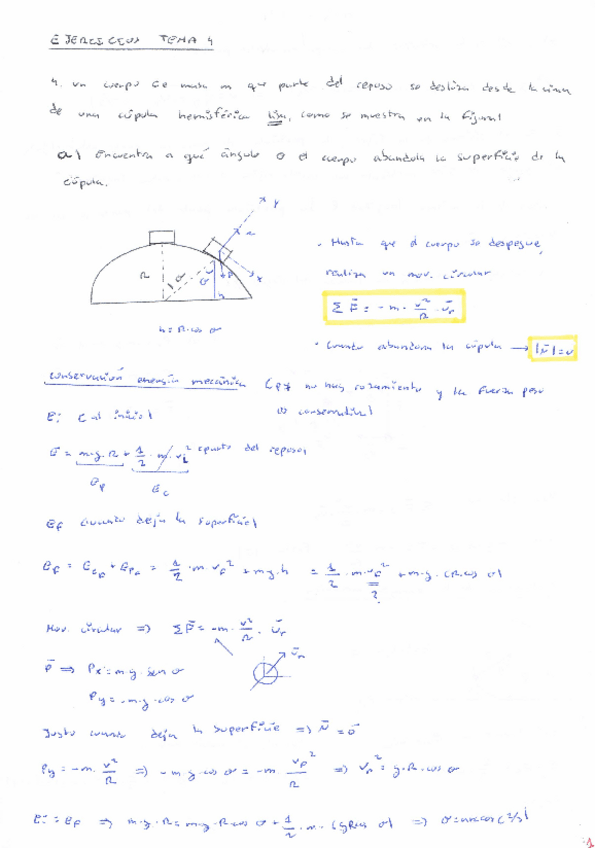 EJERCICIOS TEMA 4
4. Un cuerpo de masa m que parte del reposo se desliza desde la cima
de una cúpula hemisférica lisa, como se muestra en la figura
a) Encuentra a qué ángulo σ el cuerpo abandona la superficie de la
cúpula.
y
R
σ
σ
h
x
h = R·cos σ
· Hasta que el cuerpo se despegue,
realiza un mov. circular
Σ F⃗ = -m · v²/R · u⃗r
· Cuando abandona la cúpula → |N⃗| = 0
Conservación energía mecánica (pq no hay rozamiento y la fuerza peso
es conservativa)
Ei (al inicio)
E = m·g·R + 1/2 · m · vi² (parte del reposo)
Ep
Ec
Ef cuando deja la superficie
Ef = Ecf + Epf = 1/2 · m vf² + m g·h = 1/2 · m·vf² + m·g·(R·cos σ)
?
Mov. circular ⇒ Σ F⃗ = -m · v²/R · u⃗r
u⃗r
P⃗ ⇒ Px = m·g·sen σ
Py = -m·g·cos σ
Justo cuando deja la superficie ⇒ N⃗ = 0⃗
Py = -m · v²/R ⇒ -m·g·cos σ = -m vf²/R ⇒ vf² = g·R·cos σ
Ei = Ef ⇒ m·g·R = m·g·R·cos σ + 1/2 · m · (gR cos σ) ⇒ σ = arccos(2/3)
1